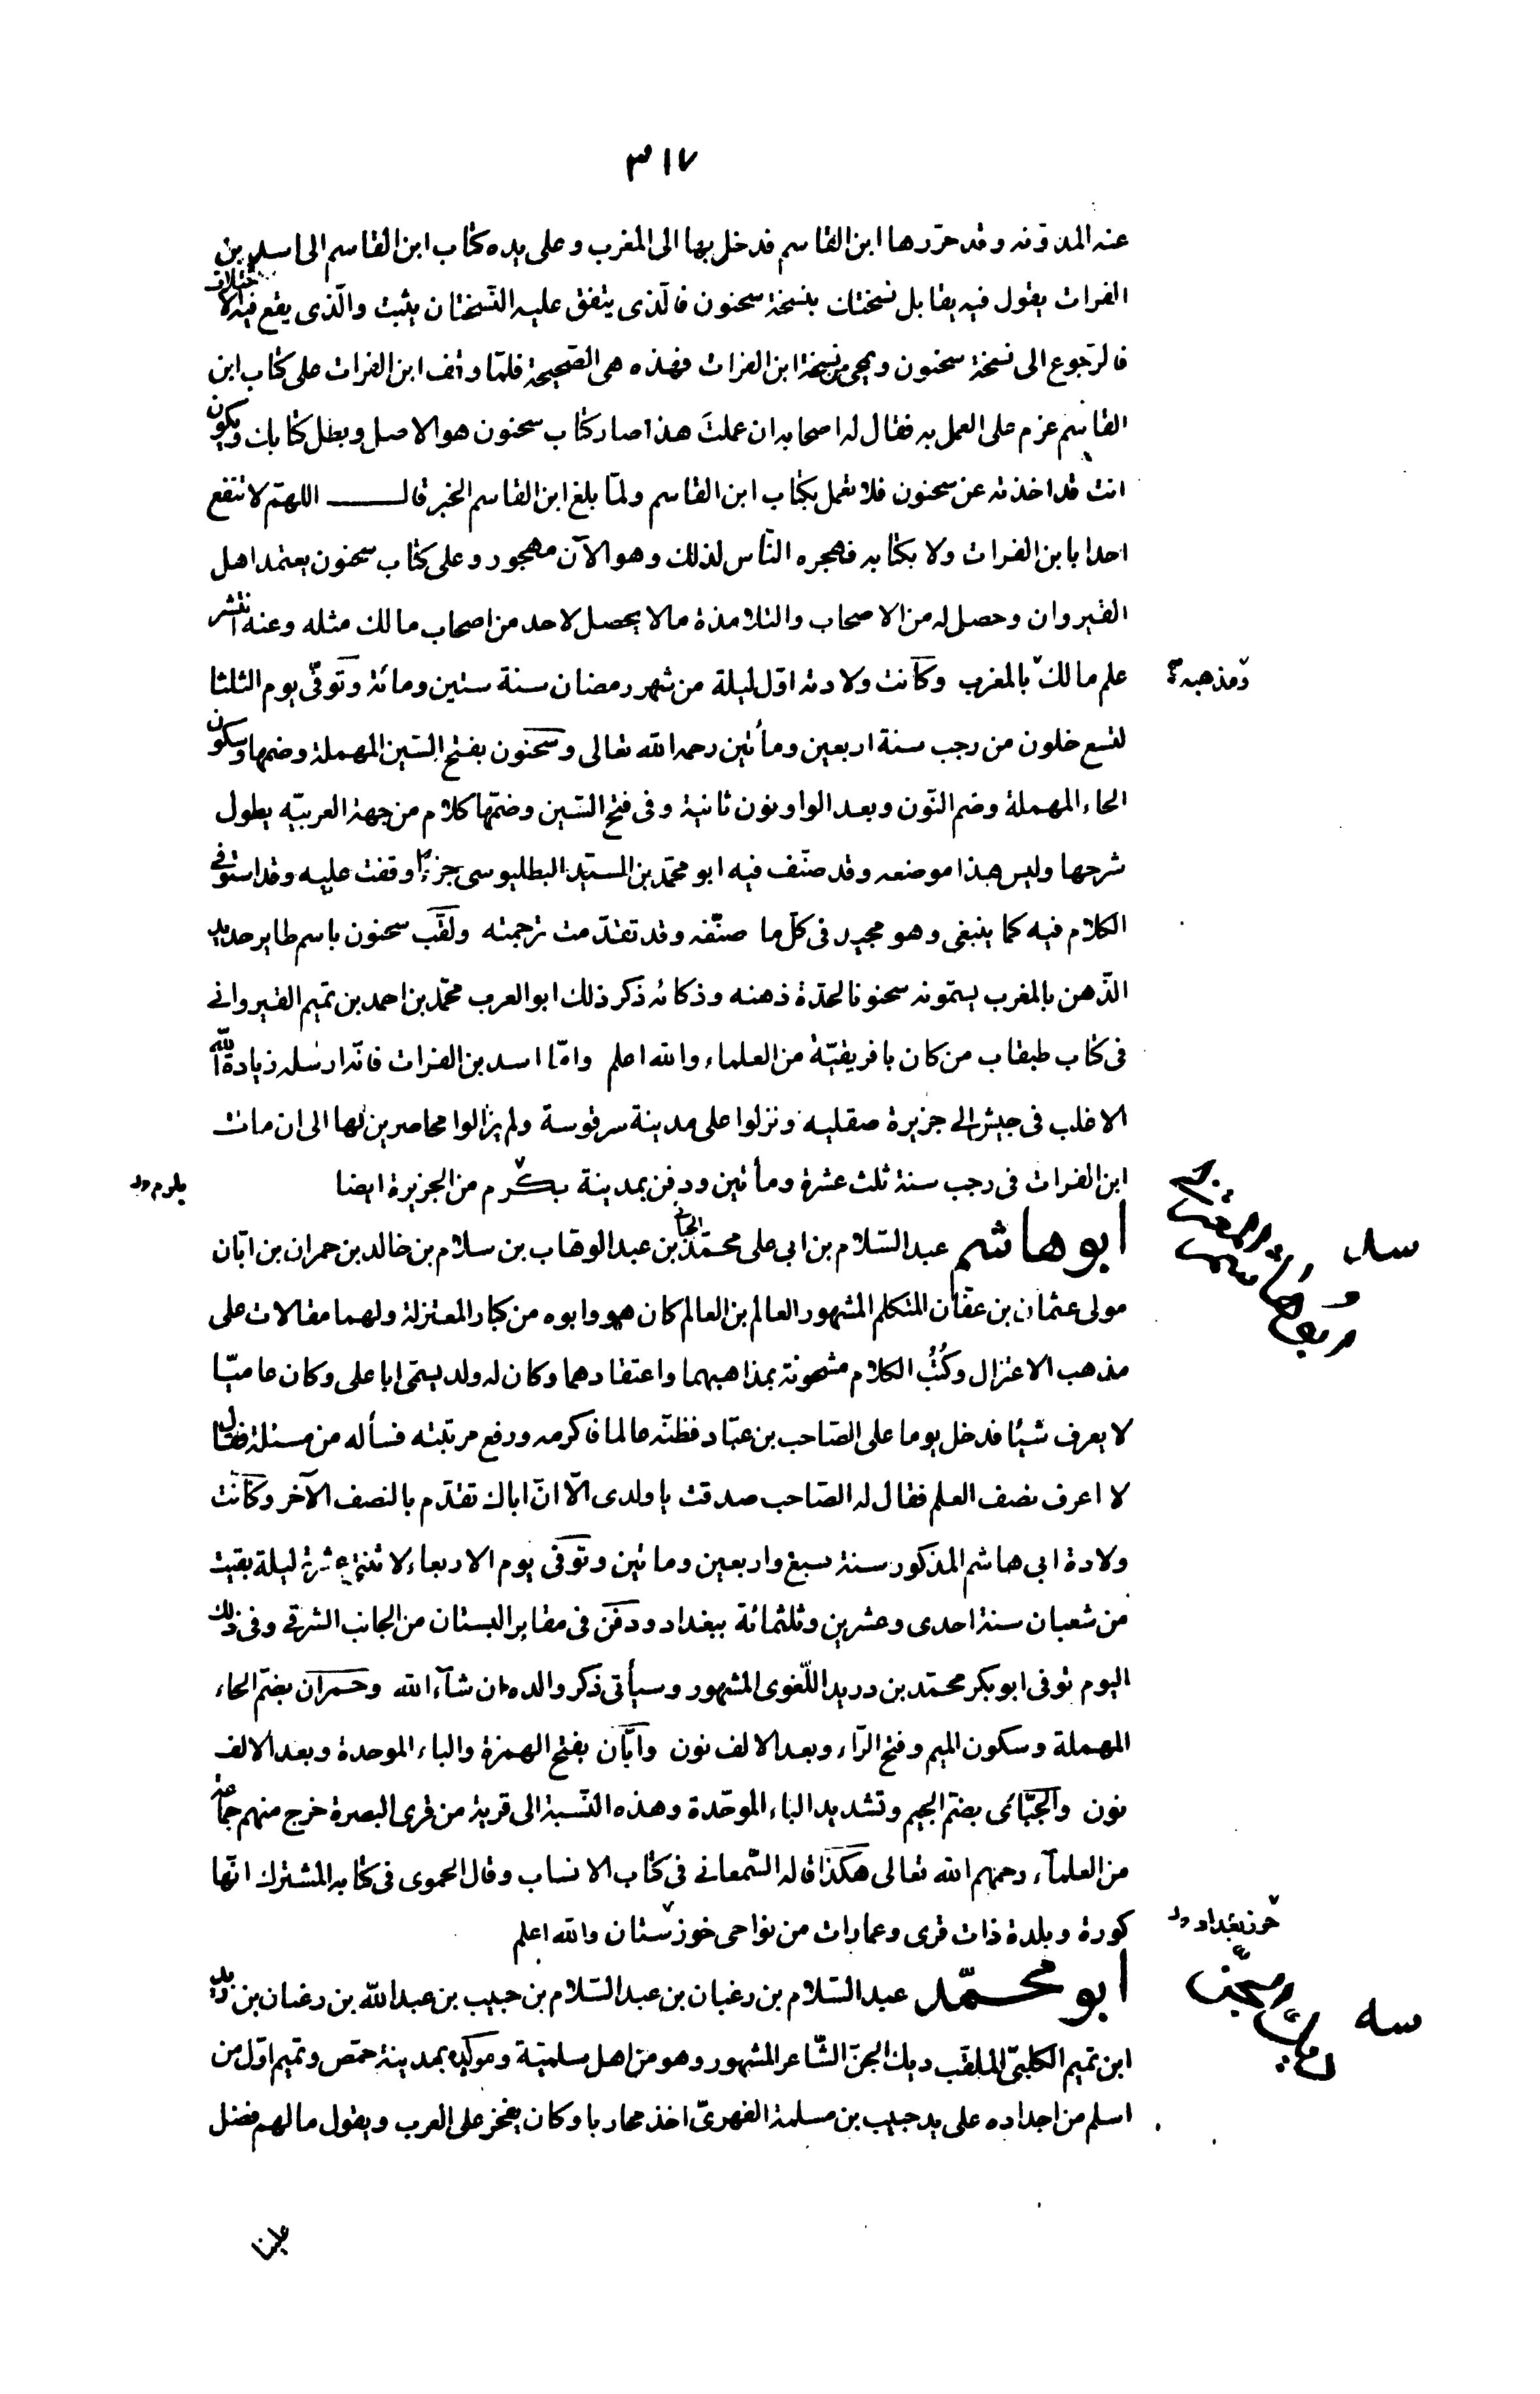 ٣١٧
عنه المدوّنه وقد حرّرها ابن القاسم فدخل بها الى المغرب وعلى يده كتاب ابن القاسم الى اسد بن
الفرات يقول فيه يقابل نسختك بنسخة سحنون فالّذى يتفق عليه النّسختان يثبت والّذى يقع فيه الاختلاف
فالرّجوع الى نسخة سحنون ويمحى من نسخة ابن الفرات فهذه هى الصّحيحة فلمّا وقف ابن الفرات على كتاب ابن
القاسم عزم على العمل به فقال له اصحابه ان عملتَ هذا صار كتاب سحنون هو الاصل وبطل كتابك ويكون
انت قد اخذته عن سحنون فلا تعمل بكتاب ابن القاسم ولمّا بلغ ابن القاسم الخبر قال اللهمّ لا تنفع
احدا بابن الفرات ولا بكتابه فهجره النّاس لذلك وهو الآن مهجور وعلى كتاب سحنون يعتمد اهل
القيروان وحصل له من الاصحاب والتلامذة ما لا يحصل لاحد من اصحاب مالك مثله وعنه انتشر
علم مالك بالمغرب وكانت ولادته اوّل ليلة من شهر رمضان سنة ستين ومائة وتوفّى يوم الثلثا
ومذهبه
لتسع خلون من رجب سنة اربعين ومأتين رحمه الله تعالى وسحنون بفتح السّين المهملة وضمها وسكون
الحاء المهملة وضم النّون وبعد الواو نون ثانية وفى فتح السّين وضمّها كلام من جهة العربيّه يطول
شرحها وليس هذا موضعه وقد صنّف فيه ابو محمّد بن السيّد البطليوسى جزءا وقفت عليه وقد استوفى
الكلام فيه كما ينبغى وهو مجيد فى كلّ ما صنّفه وقد تقدّمت ترجمته ولقّب سحنون باسم طاير حديد
الذّهن بالمغرب يسمّونه سحنونا لحدّة ذهنه وذكائه ذكر ذلك ابو العرب محمّد بن احمد بن تميم القيروانى
فى كتاب طبقاب من كان بافريقيّة من العلماء والله اعلم وامّا اسد بن الفرات فانّه ارسله زيادة الله
الاغلب فى جيش الى جزيرة صقليه ونزلوا على مدينة سرقوسة ولم يزالوا محاصرين لها الى ان مات
ابن الفرات فى رجب سنة ثلث عشرة ومأتين ودفن بمدينة بكرم من الجزيرة ايضا
بلرم
ابو هاشم عبد السّلام بن ابى على محمّد الجبائى بن عبد الوهّاب بن سلام بن خالد بن حمران بن ابّان
مولى عثمان بن عفّان المتكلم المشهور العالم بن العالم كان هو وابوه من كبار المعتزلة ولهما مقالات على
مذهب الاعتزال وكُتُب الكلام مشحونة بمذاهبهما واعتقادهما وكان له ولد يسمّى ابا على وكان عاميّا
لا يعرف شيئا فدخل يوما على الصّاحب بن عبّاد فظنّه عالما فاكرمه ورفع مرتبته فسأله من مسئلة فقال
لا اعرف نصف العلم فقال له الصّاحب صدقت يا ولدى الّا انّ اباك تقدّم بالنصف الآخر وكانت
ولادة ابى هاشم المذكور سنة سبع واربعين وماتين وتوفى يوم الاربعاء لاثنتى عشرة ليلة بقيت
من شعبان سنة احدى وعشرين وثلثمائة ببغداد ودفن فى مقابر البستان من الجانب الشرقى وفى ذلك
اليوم توفى ابو بكر محمّد بن دريد اللّغوى المشهور وسيأتى ذكر والده ان شاء الله وحمران بضمّ الحاء
المهملة وسكون الميم وفتح الرّاء وبعد الالف نون وابّان بفتح الهمزة والباء الموحدة وبعد الالف
نون والجبّائى بضمّ الجيم وتشديد الباء الموحّدة وهذه النّسبة الى قرية من قرى البصرة خرج منهم جماعة
من العلمآء رحمهم الله تعالى هكذا قاله السّمعانى فى كتاب الانساب وقال الحموى فى كتابه المشترك انّها
كورة وبلدة ذات قرى وعمارات من نواحى خوزستان والله اعلم
ابو محمّد عبد السّلام بن رغبان بن عبد السّلام بن حبيب بن عبد الله بن رغبان بن زيد
ابن تميم الكلبىّ الملقّب ديك الجنّ الشّاعر المشهور وهو من اهل سلميّة ومولده بمدينة حمص وتميم اوّل من
اسلم من اجداده على يد حبيب بن مسلمة الفهرىّ اخذ محاربا وكان يفخر على العرب ويقول ما لهم فضل
علينا